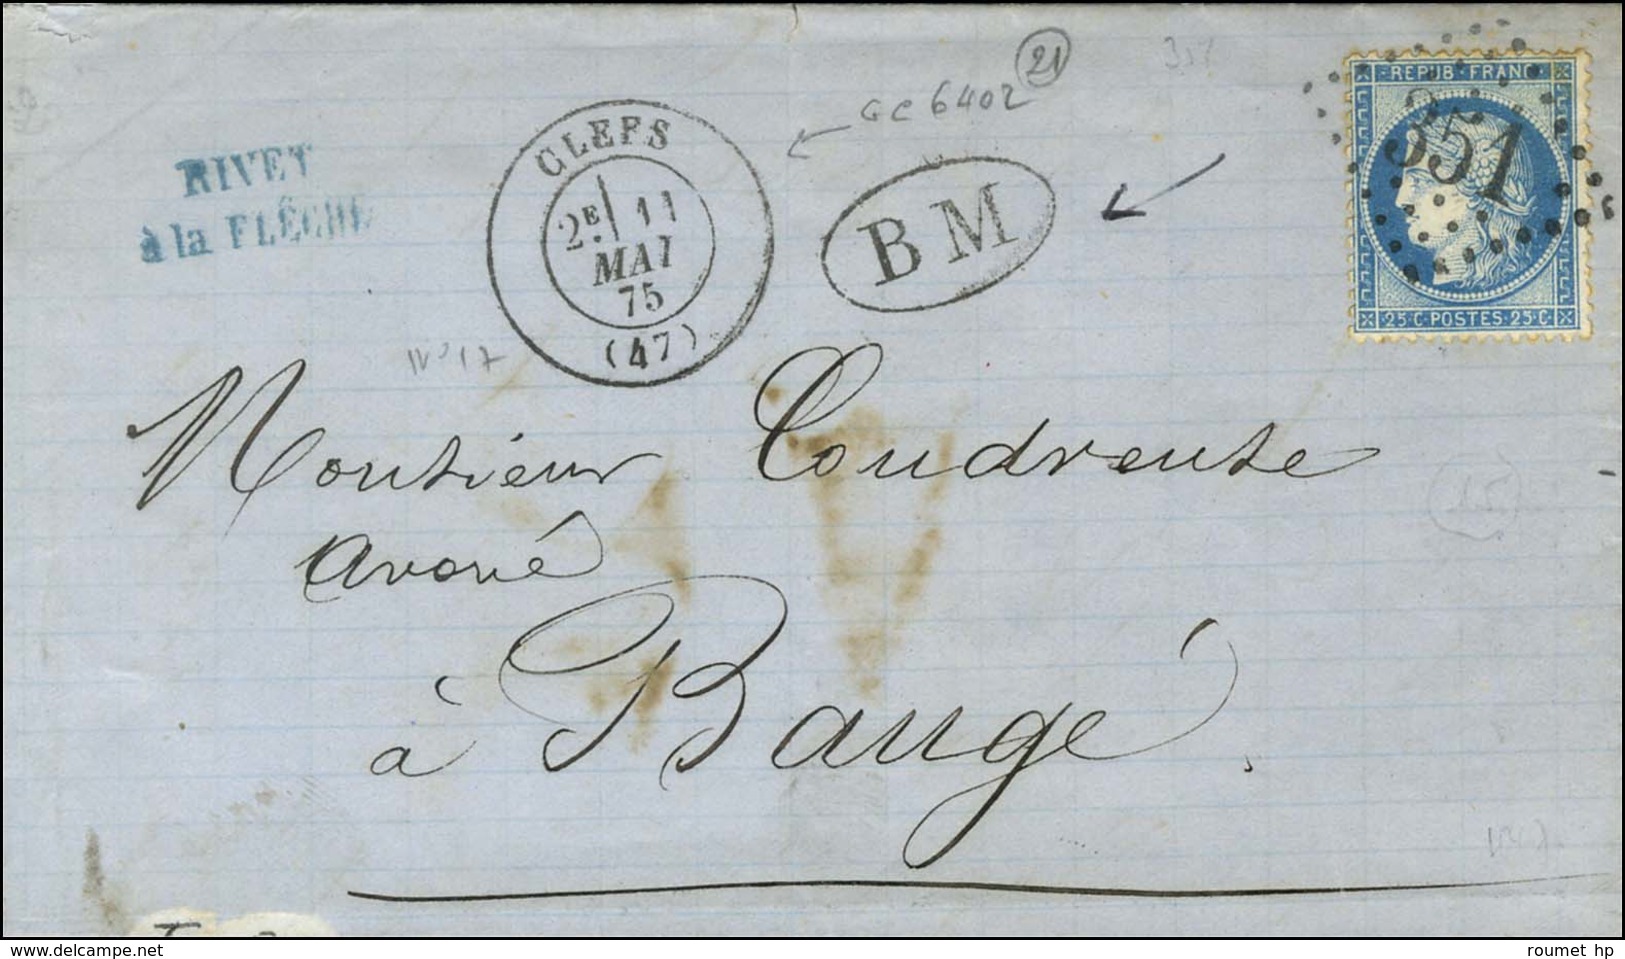 RIVET
à la FLÈCHE
CLEFS
2E 11
MAI
75
(47)
GC 6402
21
B M
REPUB · FRANC
351
25 · C · POSTES · 25 · C
N° 17
Monsieur Coudreuse
avoué
à Baugé.
15
roumet hp